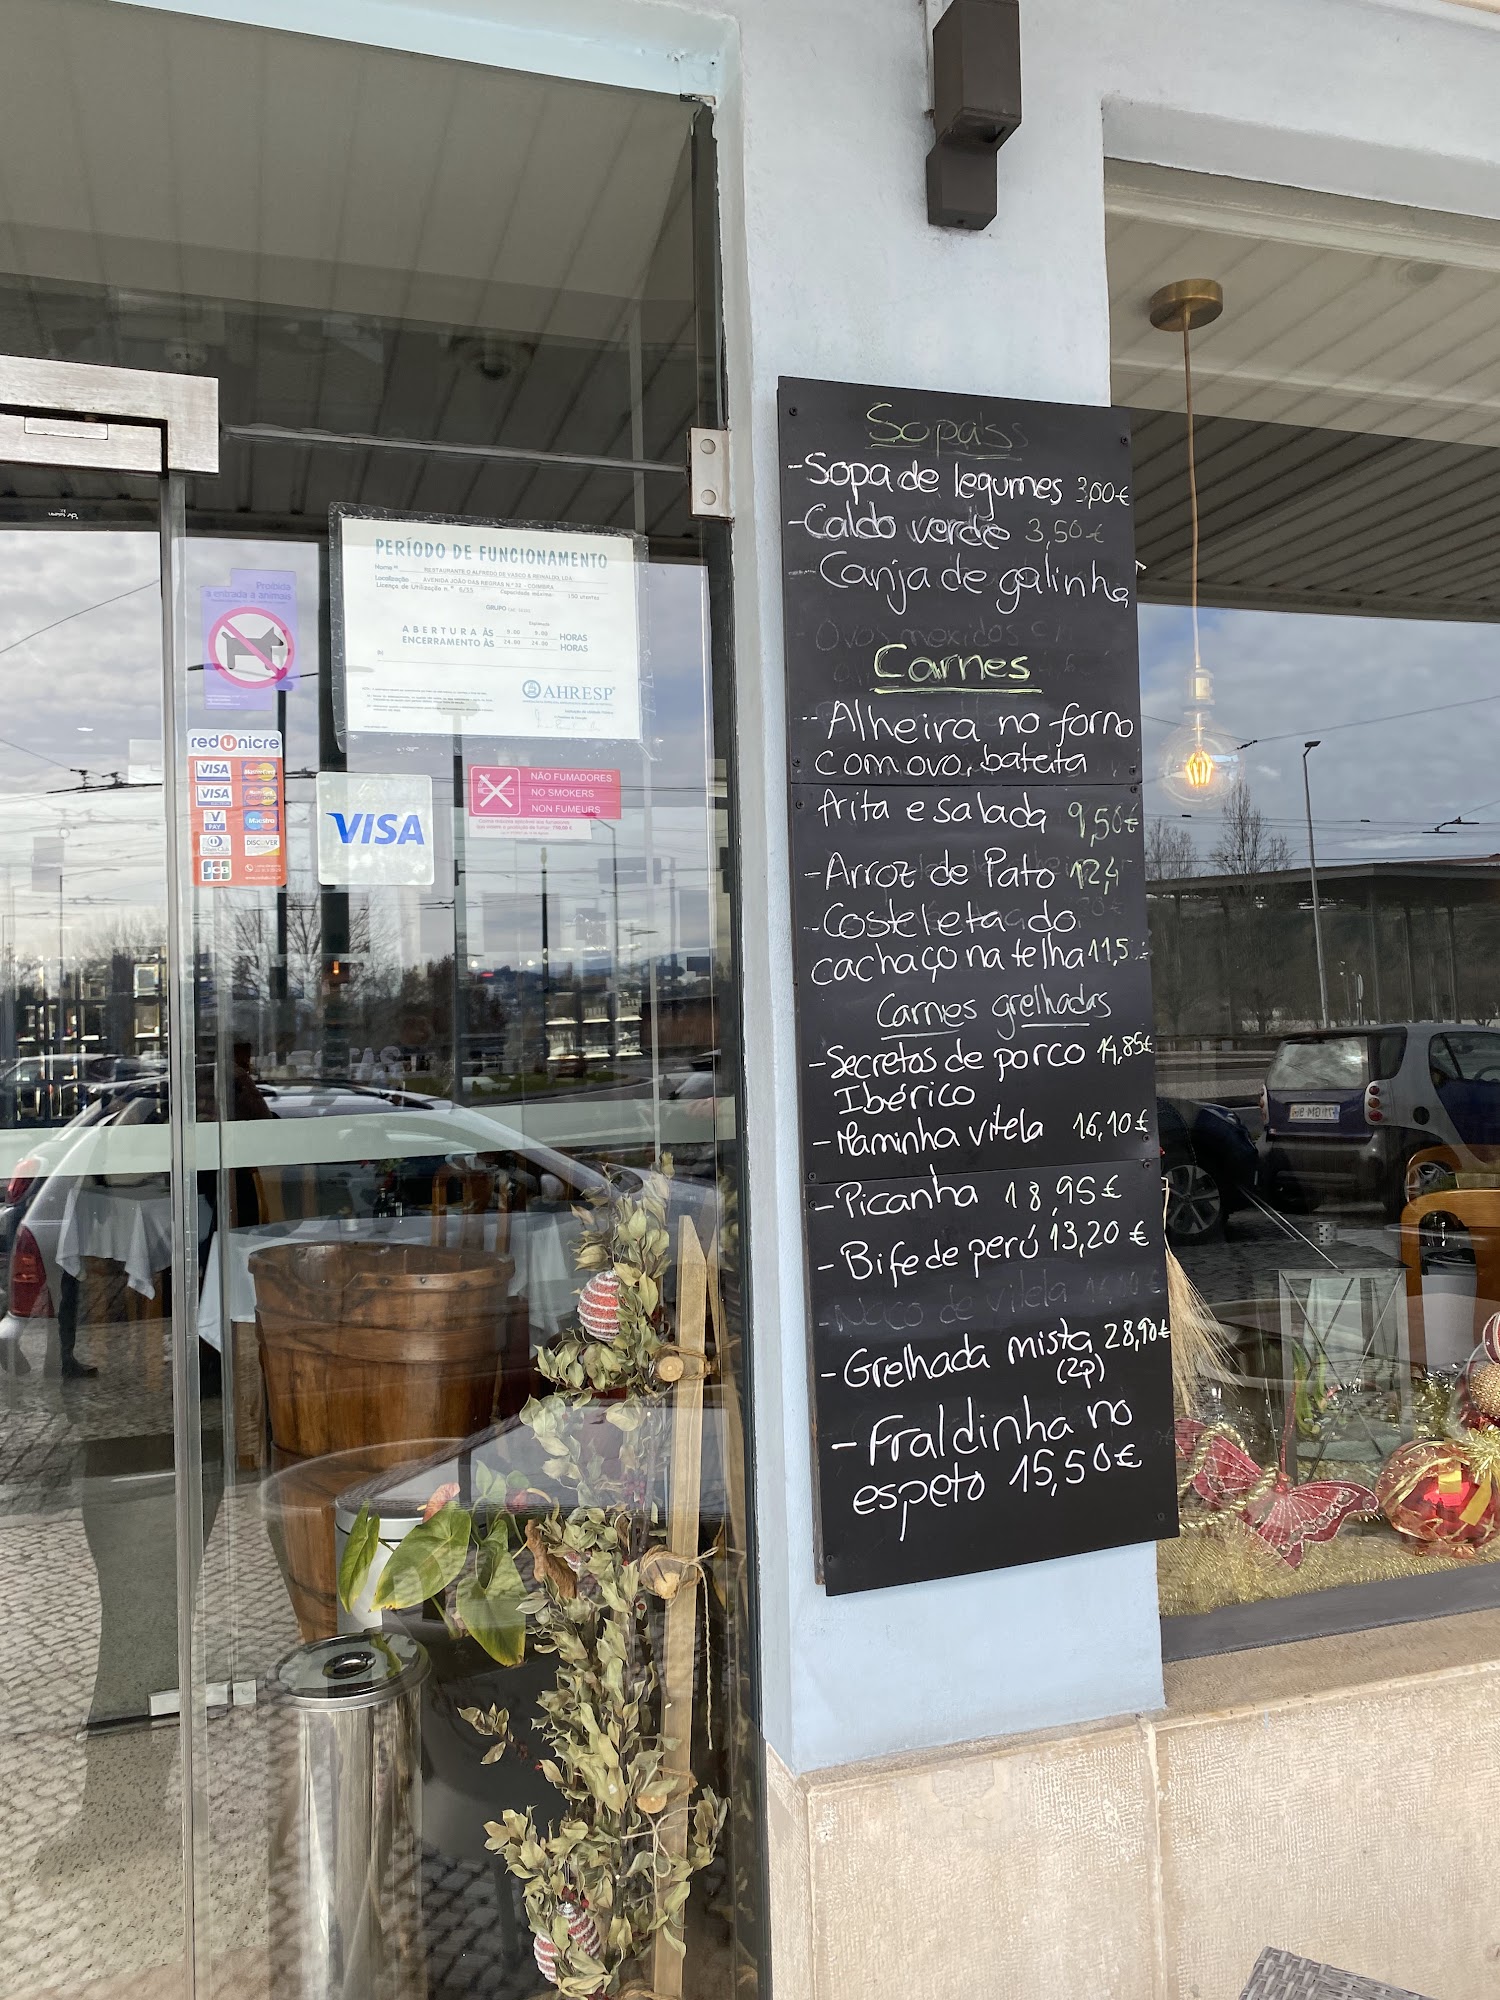 PERÍODO DE FUNCIONAMENTO
Nome RESTAURANTE O ALFREDO DE VASCO & REINALDO, LDA.
Localização AVENIDA JOÃO DAS REGRAS N.º 32 - COIMBRA
Licença de Utilização n.º 6/15 Capacidade máxima: 150 utentes
GRUPO
Esplanada
ABERTURA ÀS 8.00 8.00 HORAS
ENCERRAMENTO ÀS 24.00 24.00 HORAS
AHRESP
Proibida
a entrada a animais
redUnicre
VISA MasterCard
VISA MasterCard
V PAY Maestro
Diners Club DISCOVER
JCB
VISA
NÃO FUMADORES
NO SMOKERS
NON FUMEURS
Sopas
- Sopa de legumes 3,00€
- Caldo verde 3,50€
- Canja de galinha
Ovos mexidos
Carnes
- Alheira no forno
com ovo, batata
frita e salada 9,50€
- Arroz de Pato 12,4
- Costeleta do
cachaço na telha 11,5
Carnes grelhadas
- Secretos de porco 14,85€
Ibérico
- Maminha vitela 16,10€
- Picanha 18,95€
- Bife de perú 13,20€
- Naco de vitela
- Grelhada mista 28,90€
(2p)
- Fraldinha no
espeto 15,50€